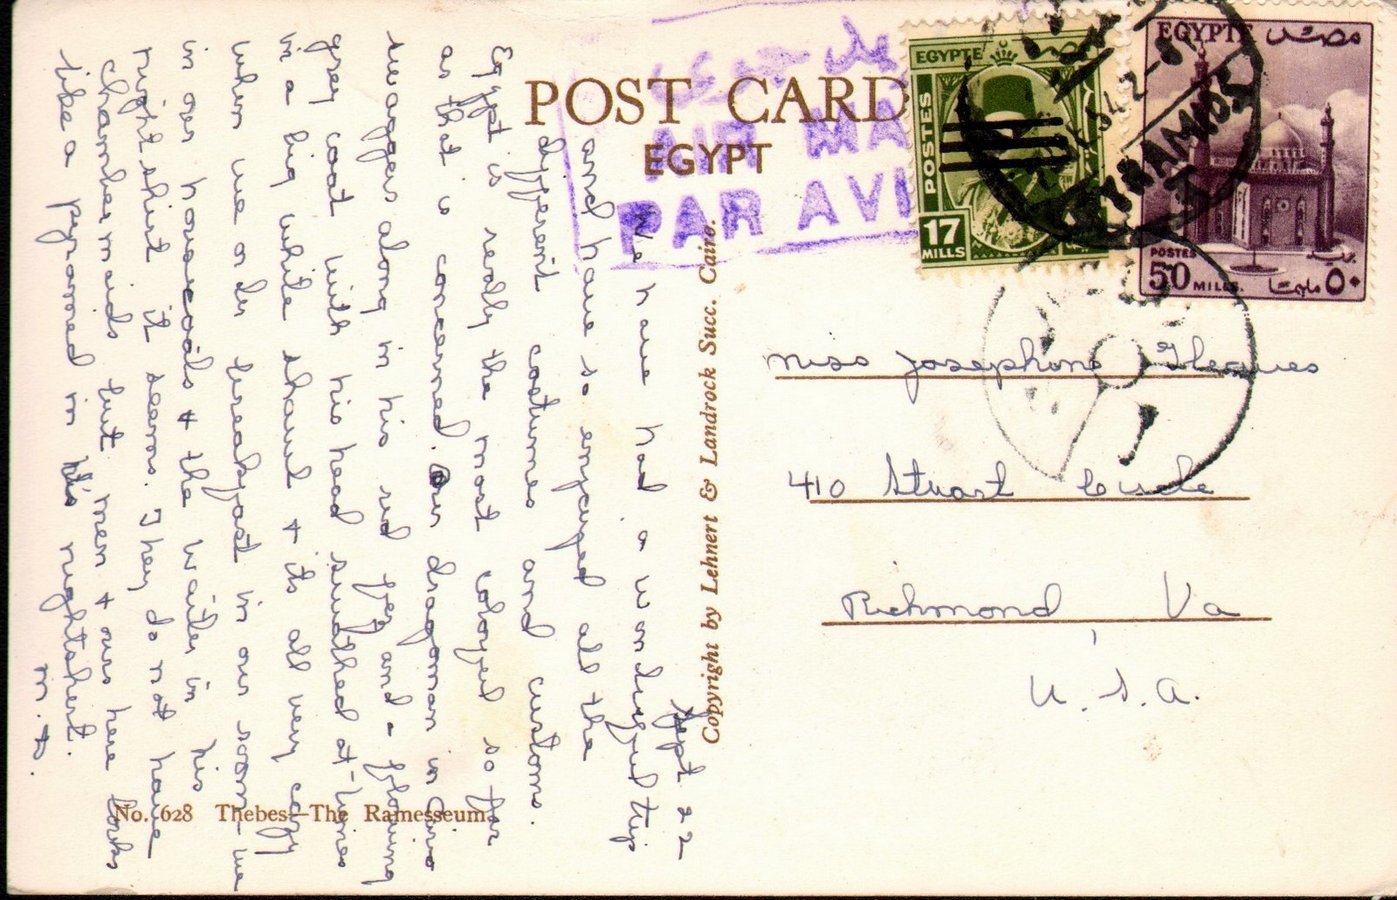 POST CARD
EGYPT
AIR MA
PAR AVI
EGYPTE
POSTES
17
MILLS
EGYPTE مصر
POSTES
50 MILLS. ٥٠ مليمات
Miss Josephine Gleaves
410 Stuart Circle
Richmond Va
U.S.A.
Copyright by Lehnert & Landrock Succ. Cairo.
No. 628 Thebes—The Ramesseum.
Sept 22
We have had a wonderful trip
and have so enjoyed all the
different costumes and customs.
Egypt is really the most colorful so far
as that is concerned. Our dragoman in Cairo
swaggers along in his red fez and a flowing
grey coat with his head swathed at times
in a big white shawl & its all very cozy
when we order breakfast in our room - we
in our housecoats & the waiter in his
nightshirt it seems. They do not have
chambermaids but men & ours here looks
like a pyramid in his nightshirt.